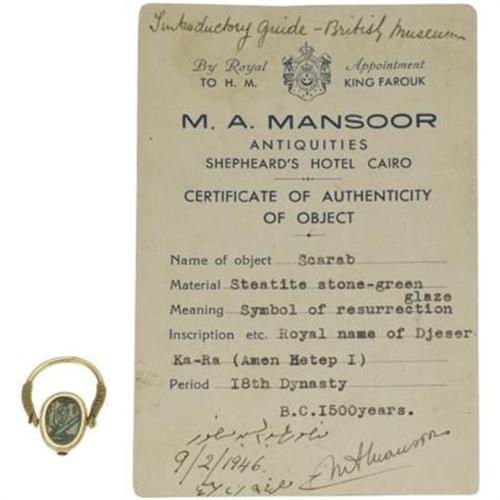 Introductory Guide - British Museum
By Royal Appointment
TO H. M. KING FAROUK
M. A. MANSOOR
ANTIQUITIES
SHEPHEARD'S HOTEL CAIRO
CERTIFICATE OF AUTHENTICITY
OF OBJECT
Name of object Scarab
Material Steatite stone-green
glaze
Meaning Symbol of resurrection
Inscription etc. Royal name of Djeser
Ka-Ra (Amen Hetep I)
Period 18th Dynasty
B.C.1500years.
9/2/1946. MAMansoor